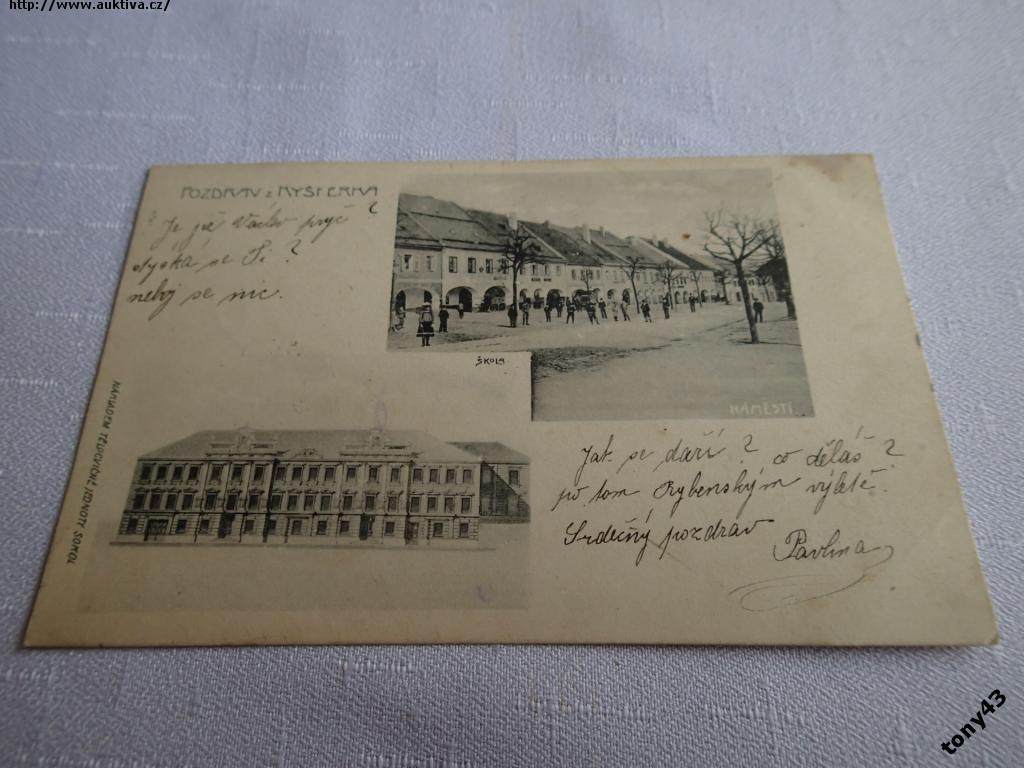 http://www.auktiva.cz/
POZDRAV z KYŠPERKA
Je již Václav pryč?
stýská se Ti?
neboj se nic.
ŠKOLA
NÁMĚSTÍ
NÁKLADEM TĚLOCVIČNÉ JEDNOTY SOKOL
Jak se daří? co děláš?
po tom Rybenským výletě.
Srdečný pozdrav
Pavlina
tony43